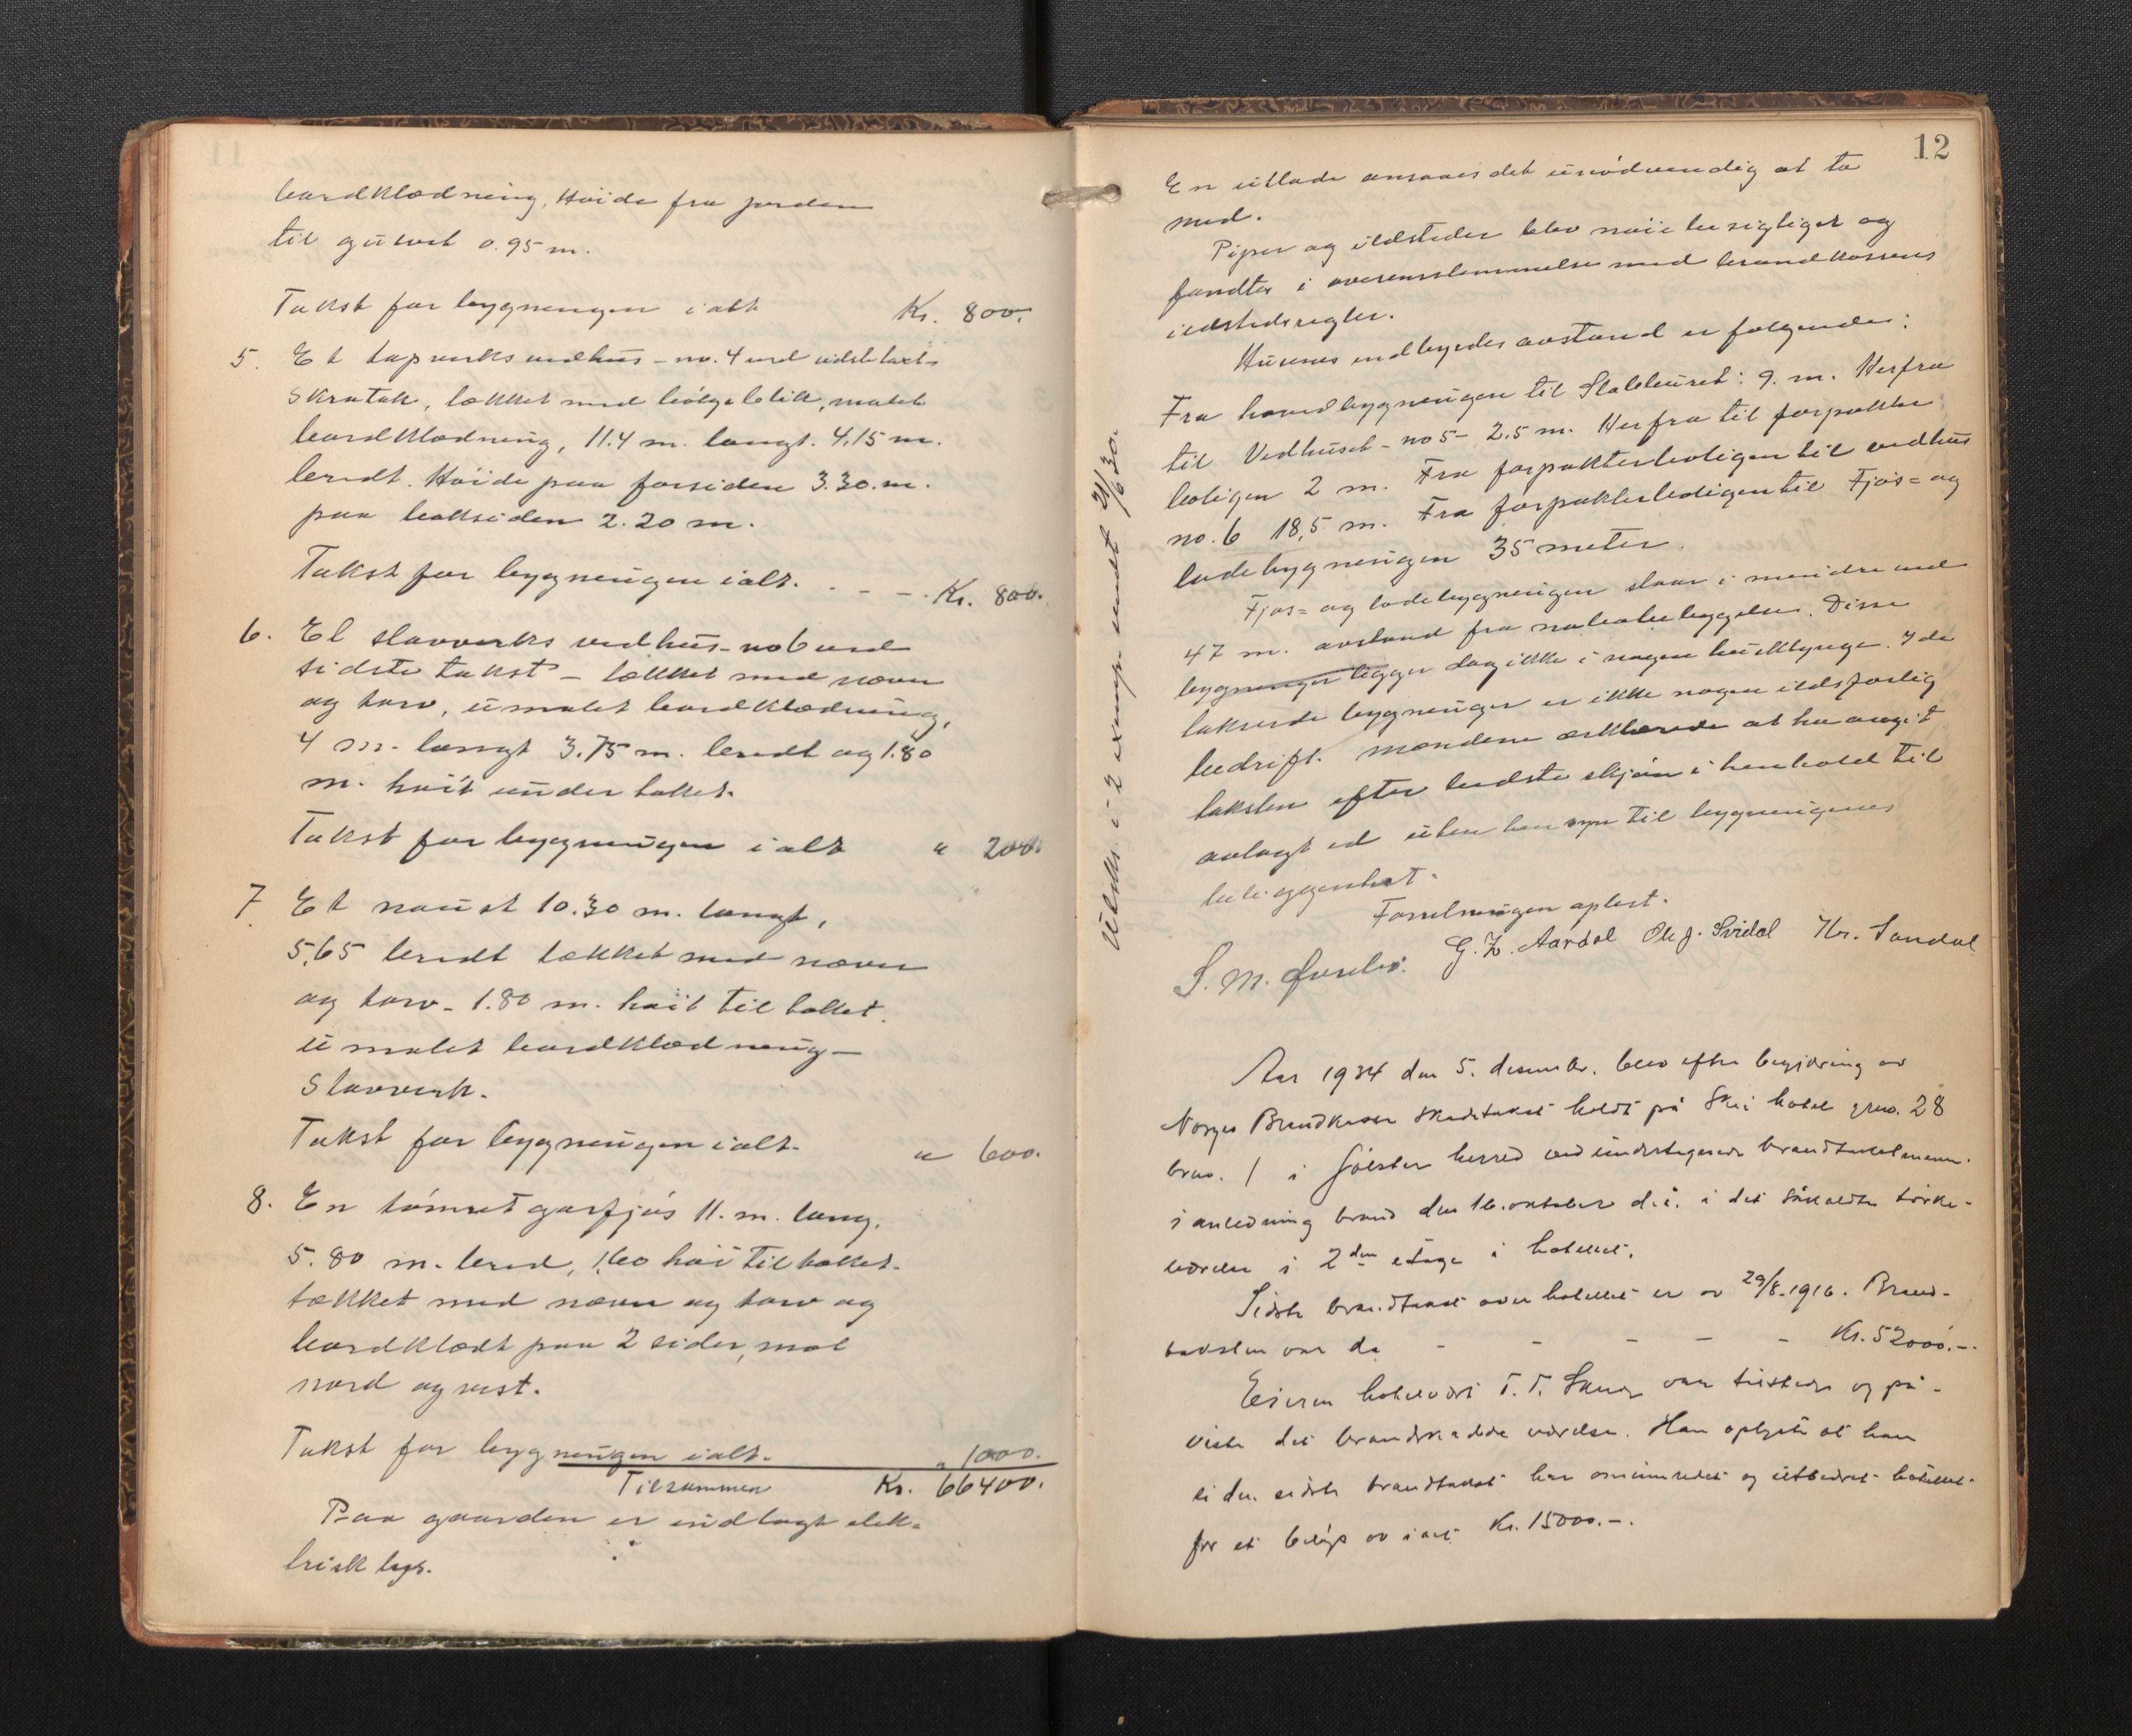 bordklædning, Høide fra jorden
til gulvet 0.95 m.
Takst for bygningen ialt Kr. 800.
5. Et tapverks vedhus - no. 4 ved sidste takst -
Skratak, tækket med bølgeblik, malet
bordklædning, 11.4 m. langt. 4,15 m.
bredt. Høide paa forsiden 3.30. m.
paa baksiden 2.20 m.
Takst for bygningen ialt. . - - . Kr. 800.
6. Et stavverks vedhus - no 6 ved
sidste takst - tækket med næver
og torv, umalet bordklædning,
4 m. langt 3.75 m. bredt og 1.80
m. høit under taket.
Takst for bygningen ialt " 200.
7 Et naust 10.30 m. langt,
5,65 bredt tækket med næver
og torv - 1.80 m. høit til taket.
umalet bordklædning -
Stavverk.
Takst for bygningen ialt. " 600.
8. En tømret gorfjøs 11. m. lang,
5.80 m. bred, 1,60 høi til taket.
tækket med næver og torv og
bordklædt paa 2 sider, mot
nord og vest.
Takst for bygningen ialt. " 1000.
Tilsammen Kr. 66400.
Paa gaarden er indlagt elek-
trisk lys.
12
En utlade ansaaes det unødvendig at ta
med.
Piper og ildsteder blev nøie besigtiget og
fandtes i overensstemmelse med brandkassens
ildstedsregler.
Husenes indbyrdes avstand er følgende:
Fra hovedbygningen til Stabburet: 9. m. Herfra
til Vedhuset - no 5 - 2.5 m. Herfra til forpakter
boligen 2 m. Fra forpakterboligen til vedhus
no. 6 18,5 m. Fra forpakterboligen til Fjøs= og
ladebygningen 35 meter.
Fjøs= og ladebygningen staar i mindre end
47 m. avstand fra nabobebyggelse. Disse
bygninger ligger dog ikke i nogen husklynge. I de
takserte bygninger er ikke nogen ildsfarlig
bedrift. Mændene erklærede at ha avgit
taksten efter bedste skjøn i henhold til
avlagt ed uten hensyn til bygningenes
beliggenhet.
Forretningen oplest.
S. M. G. Z. Aardal Ole J. Svidal Kr. Sandal
Utskr. i 2 exemp. sendt 21/6 30.
Aar 1934 den 5. desember. blev efter begjæring av
Norges Brandkasse skadetakst holdt på Skei hotel grno. 28
brno. 1 i Jølster herred ved undertegnede brandtakstmenn
i anledning brand den 16. oktober d.å. i det såkaldte tørke-
værelse i 2den etage i hotellet.
Sidste brandtakst over hotellet er av 29/8-1916. Brand-
taksten var da - - - - - Kr. 52000.-.
Eieren hotelvært T. T. Skrede var tilstede og på-
viste det brandskadde værelse. Han oplyste at han
siden sidste brandtakst har ominnredet og utbedret hotellet
for et beløp av ialt Kr. 15000.-.